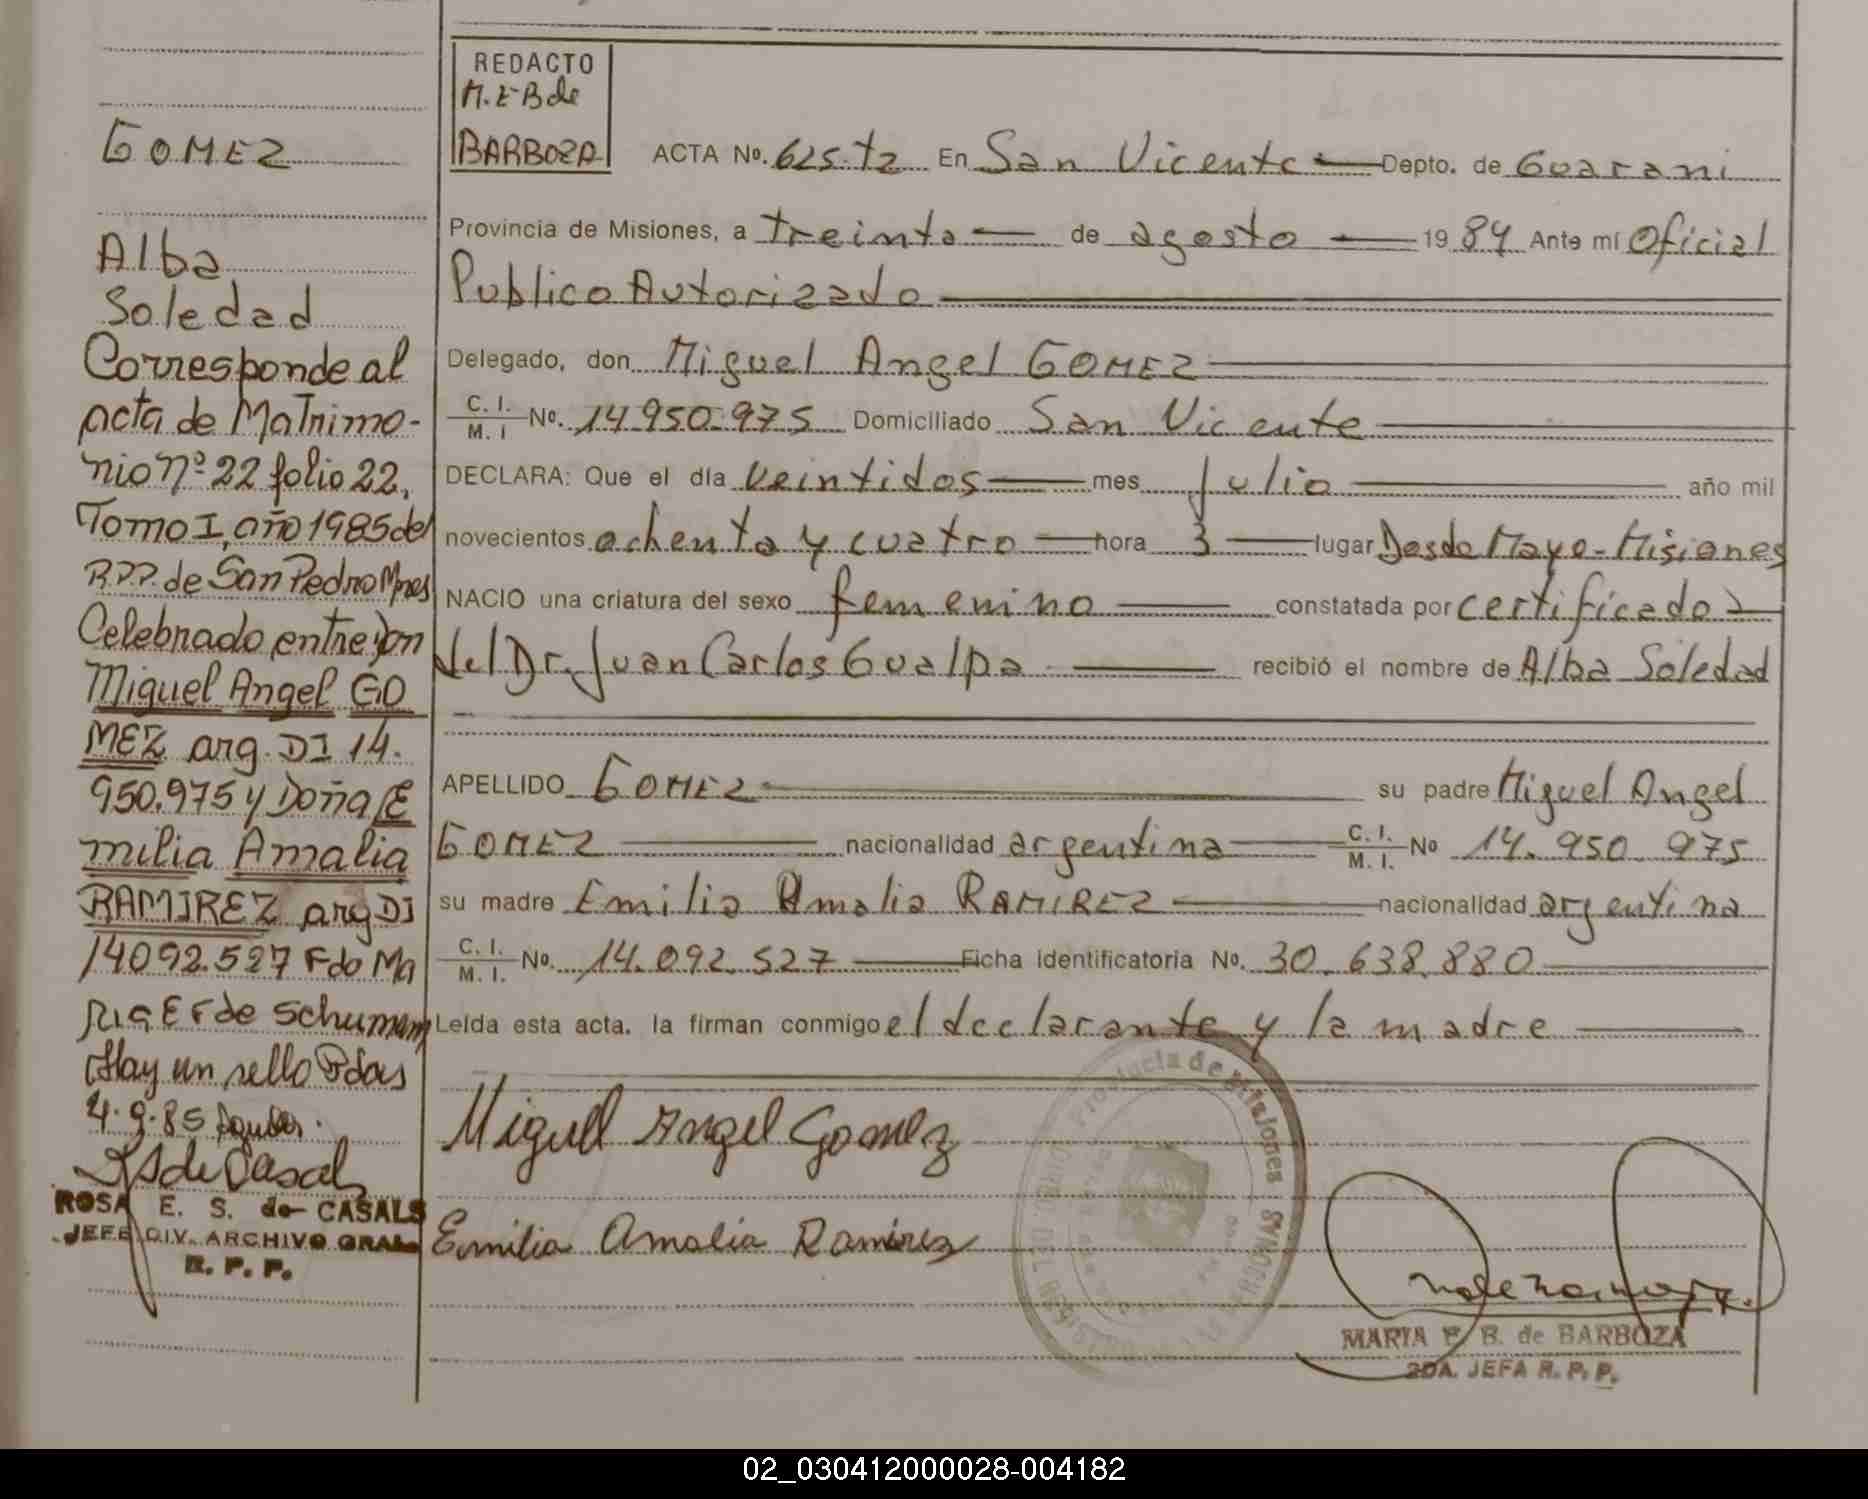 GOMEZ
Alba
Soledad
Corresponde al
acta de Matrimo-
nio Nº 22 folio 22,
Tomo I, año 1985 del
R.P.P. de San Pedro Mnes
Celebrado entre Don
Miguel Angel GO
MEZ arg. DI 14.
950.975 y Doña E
milia Amalia
RAMIREZ arg DI
14092.527 Fdo Ma
ria E F de Schumann
Hay un sello Pdas
4.9.85
ROSA E. S. de CASALS
JEFE DIV. ARCHIVO GRAL
R. P. P.
REDACTO
M.E B de
BARBOZA
ACTA Nº. 625. T2 En San Vicente Depto. de Guarani
Provincia de Misiones, a treinta de agosto 1984 Ante mí Oficial
Publico Autorizado
Delegado, don Miguel Angel GOMEZ
C. I. / M. I Nº. 14.950.975 Domiciliado San Vicente
DECLARA: Que el día veintidos mes Julio año mil
novecientos ochenta y cuatro hora 3 lugar Dos de Mayo - Misiones
NACIO una criatura del sexo femenino constatada por certificado
del Dr. Juan Carlos Gualpa recibió el nombre de Alba Soledad
APELLIDO GOMEZ su padre Miguel Angel
GOMEZ nacionalidad argentina C. I. / M. I. Nº 14.950.975
su madre Emilia Amalia RAMIREZ nacionalidad argentina
C. I. / M. I. Nº. 14.092.527 Ficha Identificatoria Nº. 30.638.880
Leída esta acta. la firman conmigo el declarante y la madre
Miguel Angel Gomez
Emilia Amalia Ramirez
Provincia de Misiones
MARIA E. B. de BARBOZA
2DA. JEFA R. P. P.
02_030412000028-004182